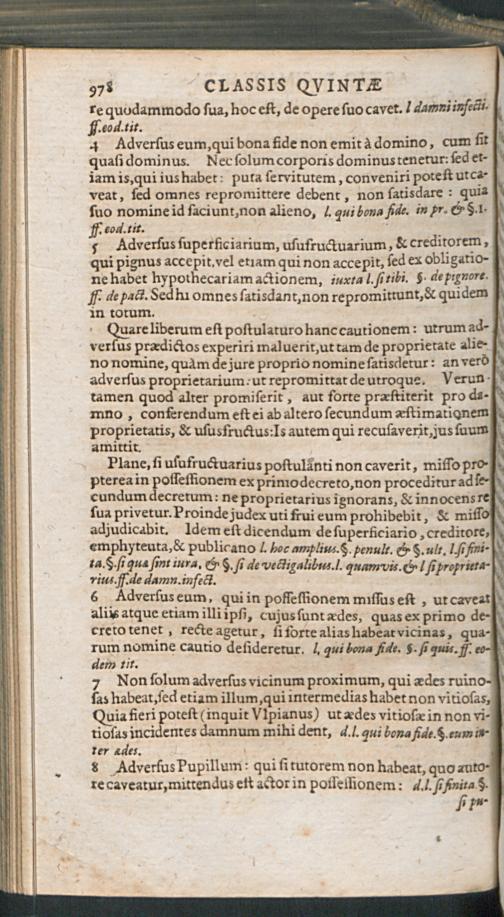 978 CLASSIS QVINTÆ
re quodammodo sua, hoc est, de opere suo cavet. l damni infecti.
ff. eod. tit.
4 Adversus eum, qui bona fide non emit à domino, cum sit
quasi dominus. Nec solum corporis dominus tenetur: sed et-
iam is, qui ius habet: puta servitutem, conveniri potest ut ca-
veat, sed omnes repromittere debent, non satisdare: quia
suo nomine id faciunt, non alieno, l. qui bona fide. in pr. & §. 1.
ff. eod. tit.
5 Adversus superficiarium, usufructuarium, & creditorem,
qui pignus accepit, vel etiam qui non accepit, sed ex obligatio-
ne habet hypothecariam actionem, iuxta l. si tibi. §. de pignore.
ff. de pact. Sed hi omnes satisdant, non repromittunt, & quidem
in totum.
Quare liberum est postulaturo hanc cautionem: utrum ad-
versus prædictos experiri maluerit, ut tam de proprietate alie-
no nomine, quàm de jure proprio nomine satisdetur: an verò
adversus proprietarium: ut repromittat de utroque. Verun-
tamen quod alter promiserit, aut forte præstiterit pro da-
mno, conferendum est ei ab altero secundum æstimationem
proprietatis, & ususfructus: Is autem qui recusaverit, jus suum
amittit.
Plane, si usufructuarius postulanti non caverit, misso pro-
pterea in possessionem ex primo decreto, non proceditur ad se-
cundum decretum: ne proprietarius ignorans, & innocens re
sua privetur. Proinde judex uti frui eum prohibebit, & misso
adjudicabit. Idem est dicendum de superficiario, creditore,
emphyteuta, & publicano l. hoc amplius. §. penult. & §. ult. l. si fini-
ta. §. si qua sint iura, & §. si de vectigalibus. l. quamvis. & l si proprieta-
rius. ff. de damn. infect.
6 Adversus eum, qui in possessionem missus est, ut caveat
aliis atque etiam illi ipsi, cujus sunt ædes, quas ex primo de-
creto tenet, recte agetur, si forte alias habeat vicinas, qua-
rum nomine cautio desideretur. l. qui bona fide. §. si quis. ff. eo-
dem tit.
7 Non solum adversus vicinum proximum, qui ædes ruino-
sas habeat, sed etiam illum, qui intermedias habet non vitiosas,
Quia fieri potest (inquit Vlpianus) ut ædes vitiosæ in non vi-
tiosas incidentes damnum mihi dent, d. l. qui bona fide. §. eum in-
ter ædes.
8 Adversus Pupillum: qui si tutorem non habeat, quo auto-
re caveatur, mittendus est actor in possessionem: d. l. si finita §.
si pu-